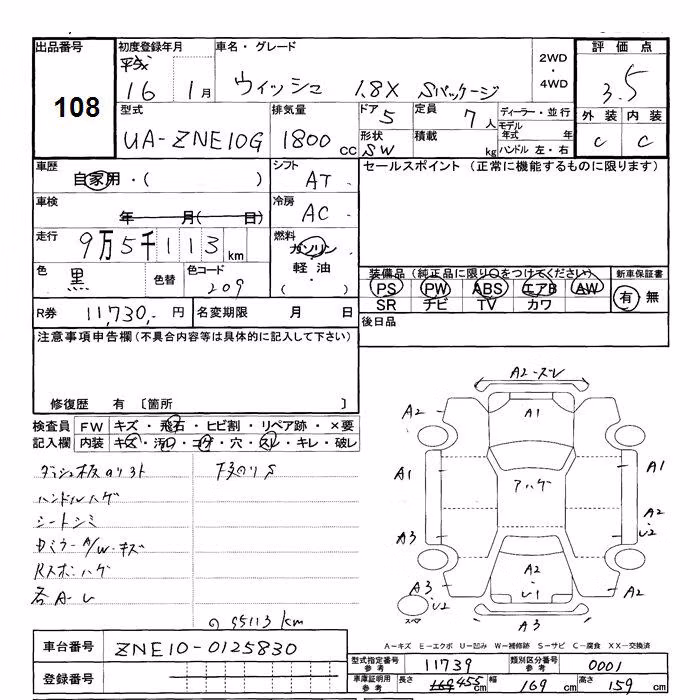 出品番号
108
初度登録年月
平成
16 1月
車名・グレード
ウィッシュ 1.8X Sパッケージ
2WD
・
4WD
評価点
3.5
型式
UA-ZNE10G
排気量
1800 CC
ドア 5
定員 7人
形状 SW
積載 kg
ディーラー・並行
モデル年式 年
ハンドル 左・右
外装 内装
C C
車歴
自家用・( )
シフト
AT
セールスポイント (正常に機能するものに限ります)
車検
年 月( 日)
冷房
AC
走行
9万5千113 km
燃料
ガソリン
軽油
( )
色
黒
色替
色コード
209
装備品 (純正品に限り○をつけてください)
PS PW ABS エアB AW
SR ナビ TV カワ
新車保証書
有 無
R券 11,730,- 円
名変期限 月 日
後日品
注意事項申告欄(不具合内容等は具体的に記入して下さい)
修復歴 有 〔箇所 〕
検査員 FW キズ・飛石・ヒビ割・リペア跡・×要
記入欄 内装 キズ・汚レ・コゲ・穴・スレ・キレ・破レ
ハンドルハゲ
シートシミ
A/W・キズ
各A-U
95113 km
A2-ズレ
A2 A1
A2
A1 アハゲ A1
A2
U2
A3 A3
A2
U1
A3
U2
A2
A3
A-キズ E-エクボ U-凹み W-補修跡 S-サビ C-腐食 XX-交換済
車台番号 ZNE10-0125830
登録番号
型式指定番号 参考 11739
類別区分番号 参考 0001
車庫証明用 参考 長さ 169 455cm 幅 169 cm 高さ 159 cm